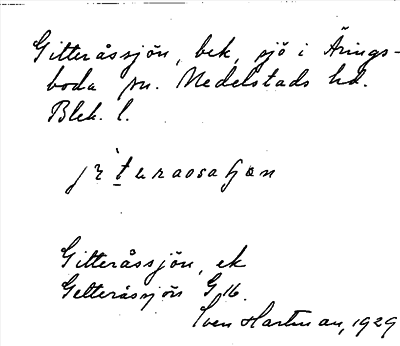 Gitteråssjön, bek, sjö i Ärings-
boda sn. Medelstads hd.
Blek. l.
Gitteråssjön, ek
Gelteråssjön G 16.
Sven Hartman, 1929